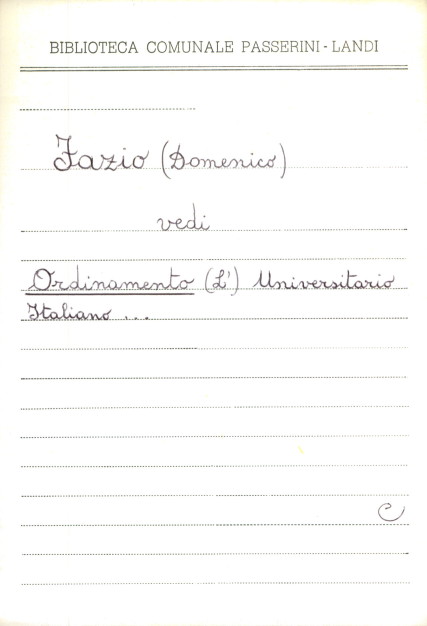 BIBLIOTECA COMUNALE PASSERINI - LANDI
Fazio (Domenico)
vedi
Ordinamento (L') Universitario
Italiano ...
C